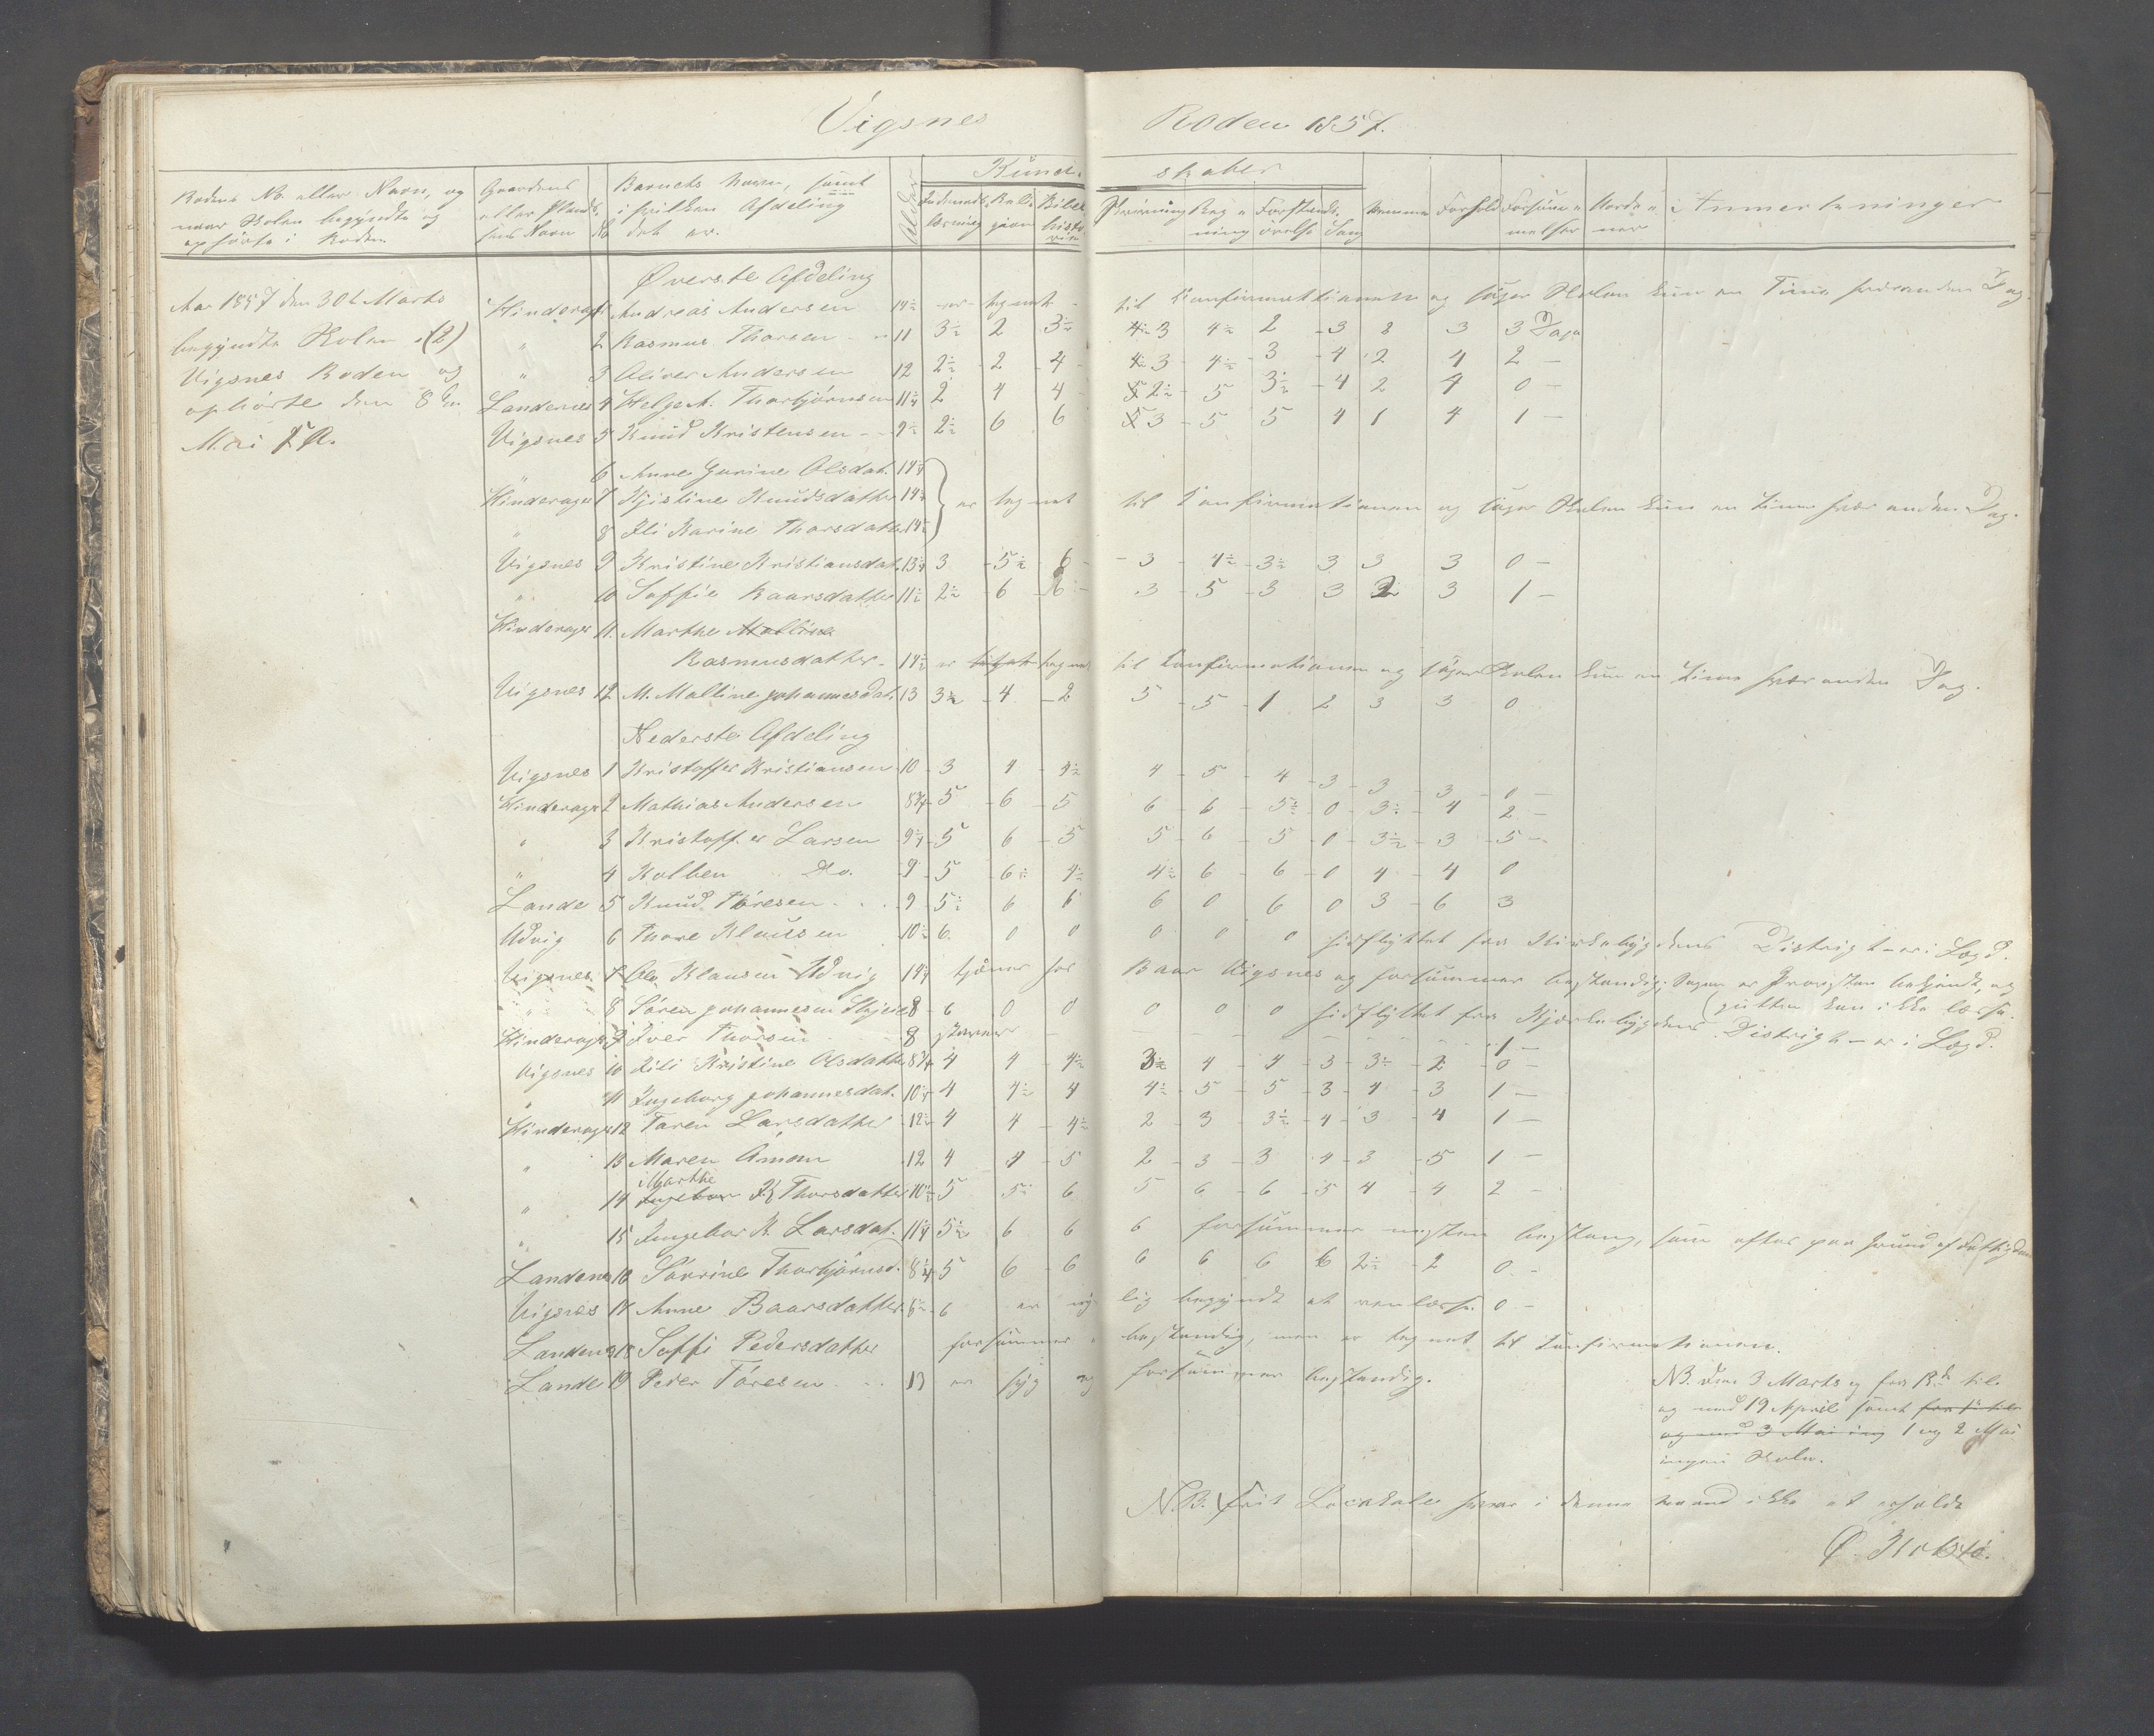 Vigsnes Roden 1857.
Rodens No. eller Navn, og naar Skolen begyndte og ophörte i Roden
Gaardens eller Pladsens Navn
No
Barnets Navn, samt i hvilken Afdeling det er.
Alder
Kund- skaber
Indenads læsning
Reli gion
Bibel histo rie
Skrivning
Reg- ning
Forstands- övelse
Sang
Forhold
Forsöm- melser
Anmerkninger
Øverste Afdeling
Aar 1857 den 30te Marts
begyndte Skolen i (2)
Vigsnes Roden og
ophörte den 8de
Mai
Hinderager 1 Andreas Andersen 14½ er tegnet til Konfirmationen og söger Skolen kun en Time hveranden Dag.
" 2 Rasmus Thorsen 11 3½ 2 3½ 3 4½ 2 3 8 3 3 Dage
" 3 Oliver Andersen 12 2½ 2 4 3 4½ 3 4 2 4 2 -
Landenes 4 Helge A. Thorbjörnsen 11¼ 2 4 4 2½ 5 3½ 4 2 4 0 -
Vigsnes 5 Knud Kristensen 9½ 2½ 6 6 3 5 5 4 1 4 1 -
" 6 Anne Gurine Olsdat. 14¼
Hinderager 7 Kjistine Knudsdatter 14½ er tegnet til Konfirmationen og söger Skolen kun en Time hver anden Dag.
" 8 Eli Karine Thorsdatter 14½
Vigsnes 9 Kristine Kristiansdat. 13¼ 3 5½ 6 3 4½ 3½ 3 3 3 0 -
" 10 Soffie Baarsdatter 11½ 2½ 6 6 3 5 3 3 2 3 1 -
Hinderager 11 Marthe Malline
Rasmusdatter 14½ er tegnet til Konfirmationen og söger Skolen kun en Time hver anden Dag.
Vigsnes 12 M. Malline Johannesdat. 13 3½ 4 2 5 5 1 2 3 3 0
Nederste Afdeling
Vigsnes 1 Kristoffer Kristiansen 10 3 4 4½ 4 5 4 3 3 3 0 -
Hinderager 2 Mathias Andersen 8¾ 5 6 5 6 6 5½ 0 3½ 4 2 -
" 3 Kristoffer Larsen 9¼ 5 6 5 5 6 5 0 3½ 3 5 -
" 4 Kolben Do. 9 5 6½ 4½ 4½ 6 6 0 4 4 0
Lande 5 Knud Töresen 9 5½ 6 6 6 0 6 0 3 6 3
Udvig 6 Thore Klausen 10½ 6 0 0 0 0 0 hidflyttet fra Kirkebygdens Distrigt - er i Lægd.
Vigsnes 7 Ole Klausen Udvig 14¼ tjener hos Baar Vigsnes og forsömmer bestandig; Sagen er Provsten bekjendt, og
" 8 Sören Johannesen Skjeie 8 6 0 0 0 0 0 hidflyttet fra Kirkebygdens Distrigt - er i Lægd. (gutten kan ikke læse.
Hinderager 9 Iver Thorsen 8 1 -
Vigsnes 10 Eili Kristine Olsdatter 8¾ 4 4 4½ 3½ 4 4 3 3½ 2 0 -
" 11 Ingeborg Johannesdat. 10¼ 4 4½ 4 4½ 5 5 3 4 3 1 -
Hinderager 12 Taren Larsdatter 12½ 4 4 4½ 2 3 3½ 4 3 4 1 -
" 13 Maren Amon 12 4 4 5 2 3 3 4 3 5 1 -
" 14 Marthe Thorsdatter 10½ 5 5½ 6 5 6 6 5 4 4 2 -
" 15 Ingebor K. Larsdat. 11¼ 5½ 6 6 6 forsömmer nesten bestandig, som oftes paa Grund af Fattigdom
Landenes 16 Sörine Thorbjörnsd. 8¼ 5 6 6 6 6 6 6 2½ 2 0 -
Vigsnes 17 Anne Baarsdatter 6½ 6 er nylig begyndt at læse. 0 -
Landenes 18 Soffi Pedersdatter forsömmer bestandig, men er tegnet til Konfirmationen.
Lande 19 Peder Töresen 13 er syg og forsömmer bestandig.
NB. Den 3 Marts og fra 13de til
og med 19 April samt
og med 3 Mai 1 og 2 Mai
ingen Skole.
N.B. Frit Locakale haves i denne ikke at erholde